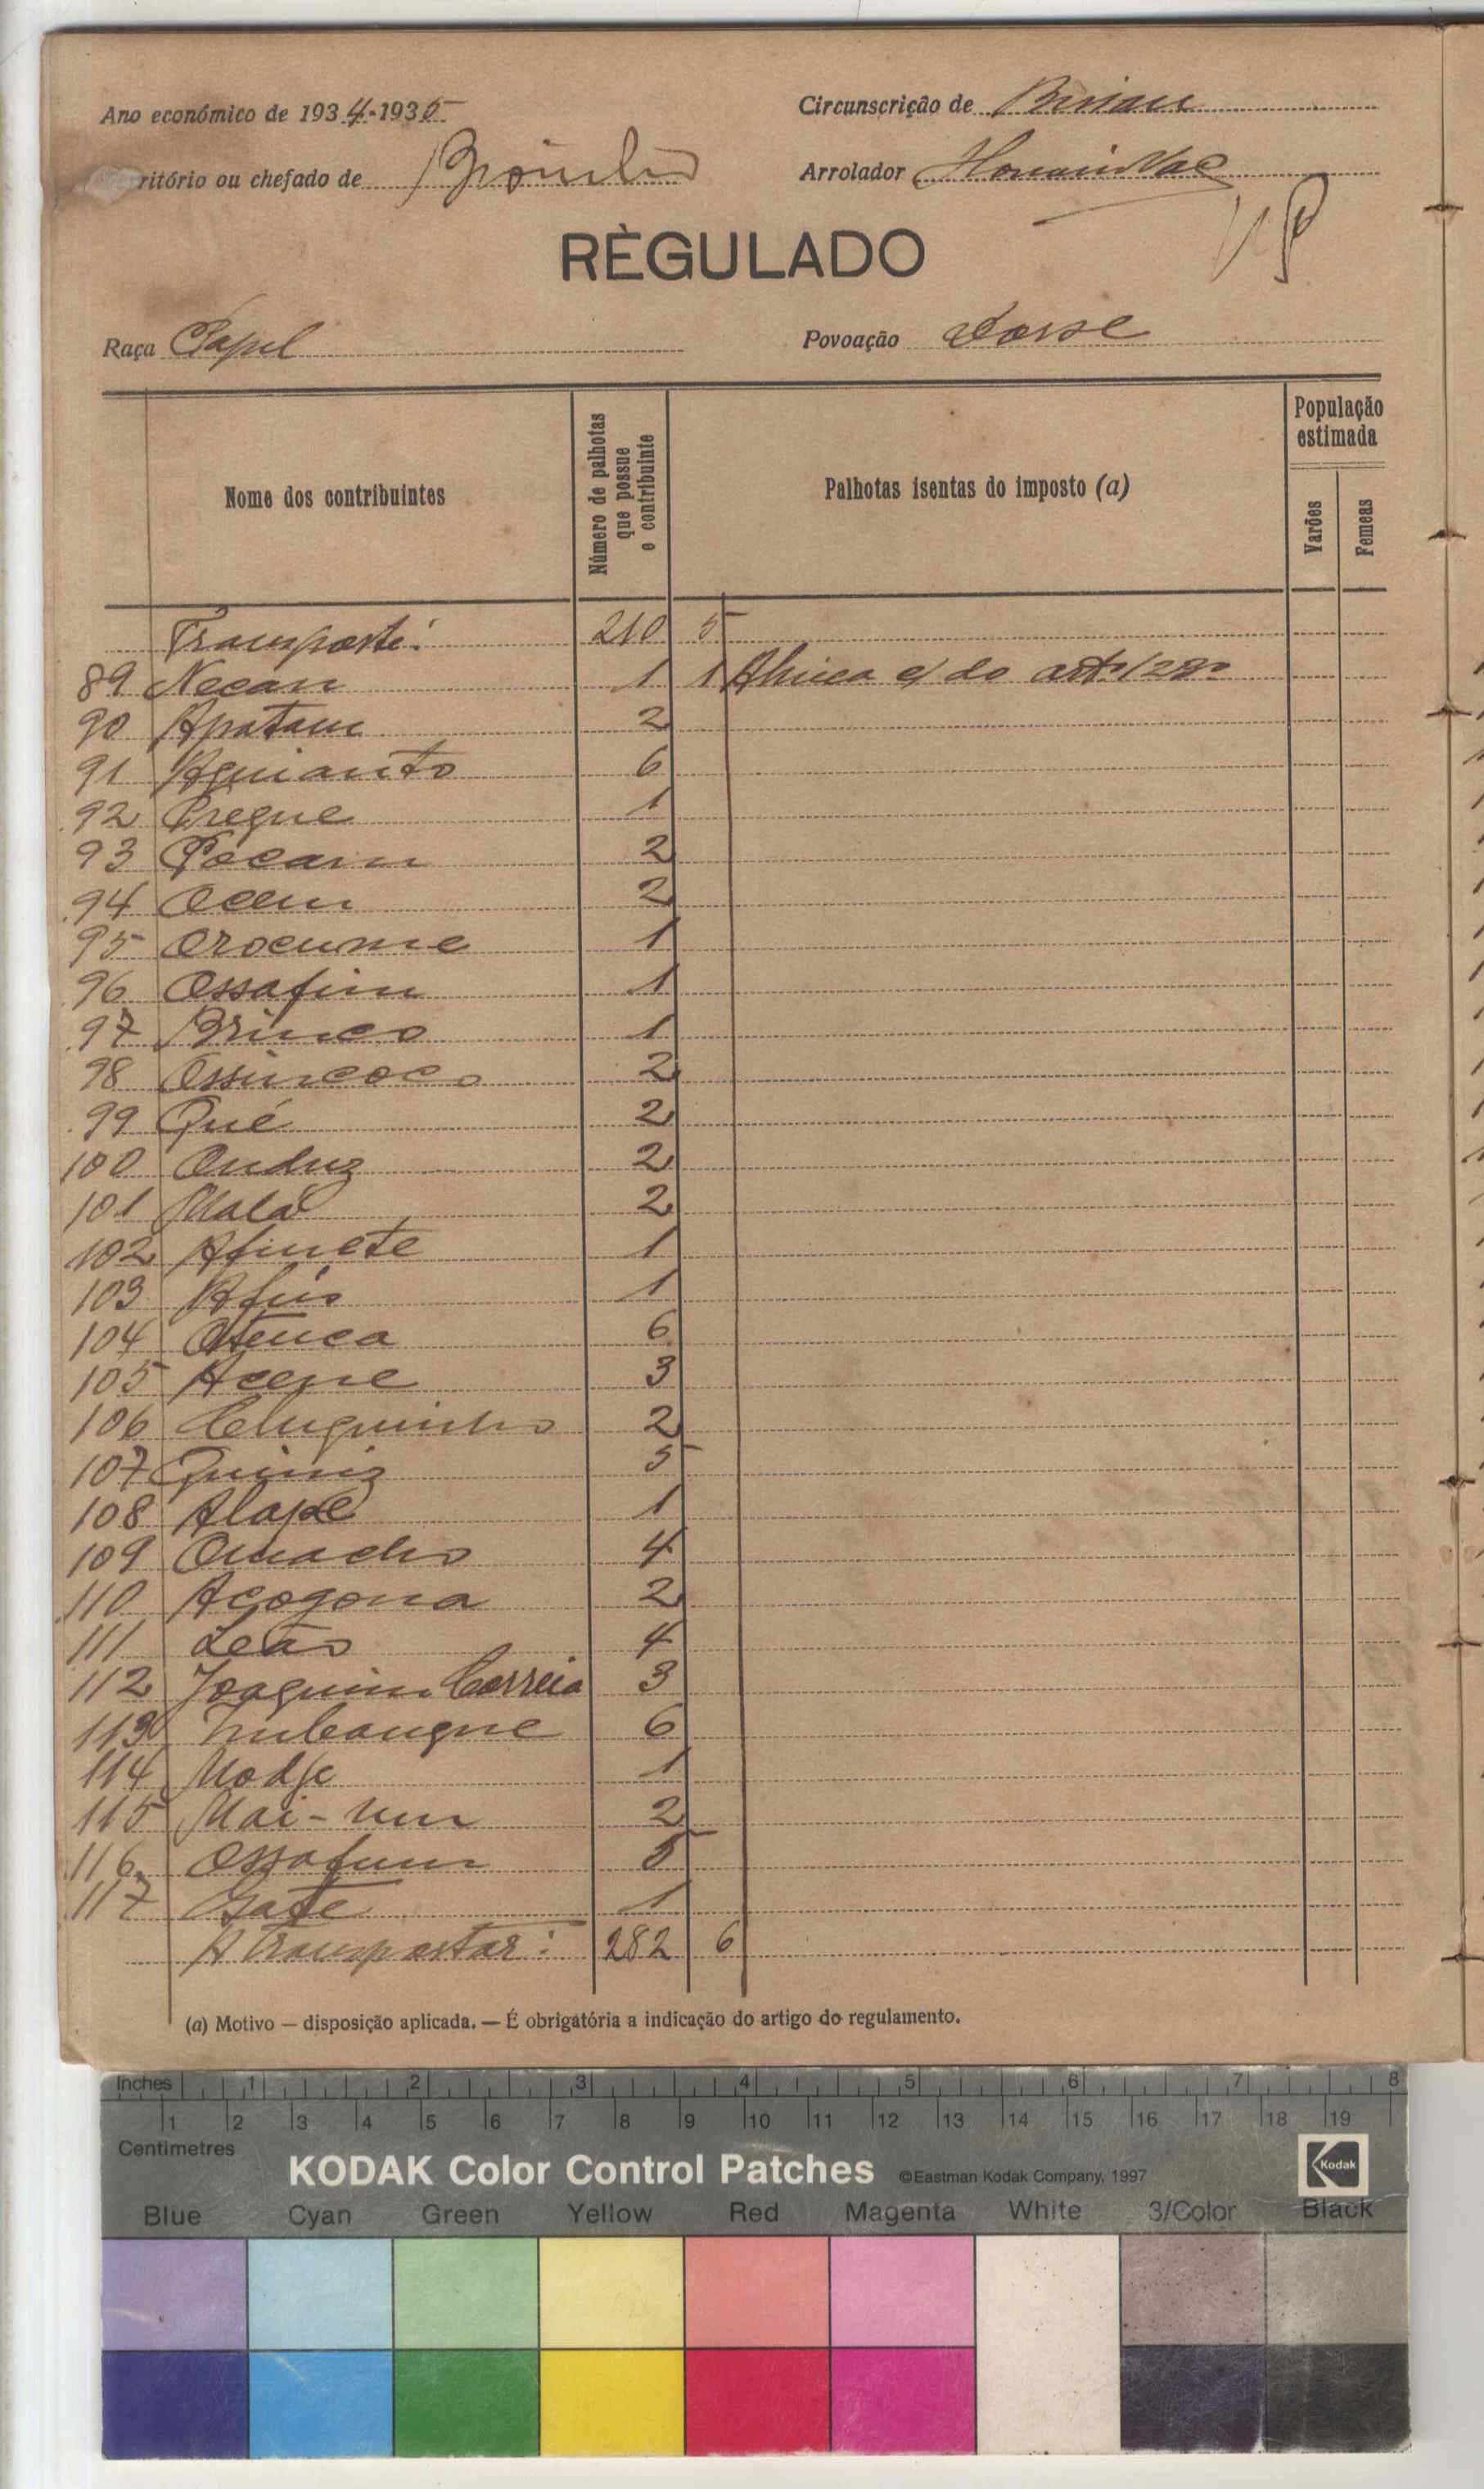 Ano económico de 1934-1935
Circunscrição de Bissau
ritório ou chefado de
Arrolador
RÈGULADO
Raça Papel
Povoação
Nome dos contribuintes
Número de palhotas que possue o contribuinte
Palhotas isentas do imposto (a)
População estimada
Varões
Femeas
Transporte: 210 5
89 Necan 1 1 Alinea c/ do artº 28º
90 Apatam 2
91 Aquianto 6
92 Pregue 1
93 Pocam 2
94 Ocem 2
95 Orocume 1
96 Ossafim 1
97 Brinco 1
98 Ossincoco 2
99 Qué 2
100 Onduz 2
101 Malá 2
102 Afinete 1
103 1
104 6
105 3
106 2
107 Quiniz 5
108 Alape 1
109 4
110 Açogona 2
111 Leão 4
112 Joaquim Correia 3
113 6
114 Modje 1
115 Mai-num 2
116 Ossofum 5
117 Gate 1
A transportar: 282 6
(a) Motivo — disposição aplicada. — É obrigatória a indicação do artigo do regulamento.
Inches 1 2 3 4 5 6 7 8
1 2 3 4 5 6 7 8 9 10 11 12 13 14 15 16 17 18 19
Centimetres
KODAK Color Control Patches ©Eastman Kodak Company, 1997 Kodak
Blue Cyan Green Yellow Red Magenta White 3/Color Black